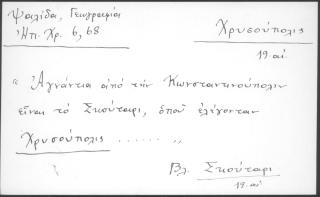 Ψαλίδα, Γεωγραφία
Ἠπ. Χρ. 6, 68
Χρυσούπολις
19 αἰ.
" Ἀγνάντια ἀπό τήν Κωνσταντινούπολιν
εἶναι τό Σκούταρι, ὁποῦ ἐλέγονταν
Χρυσούπολις ...... "
Βλ. Σκούταρι
19. αἰ